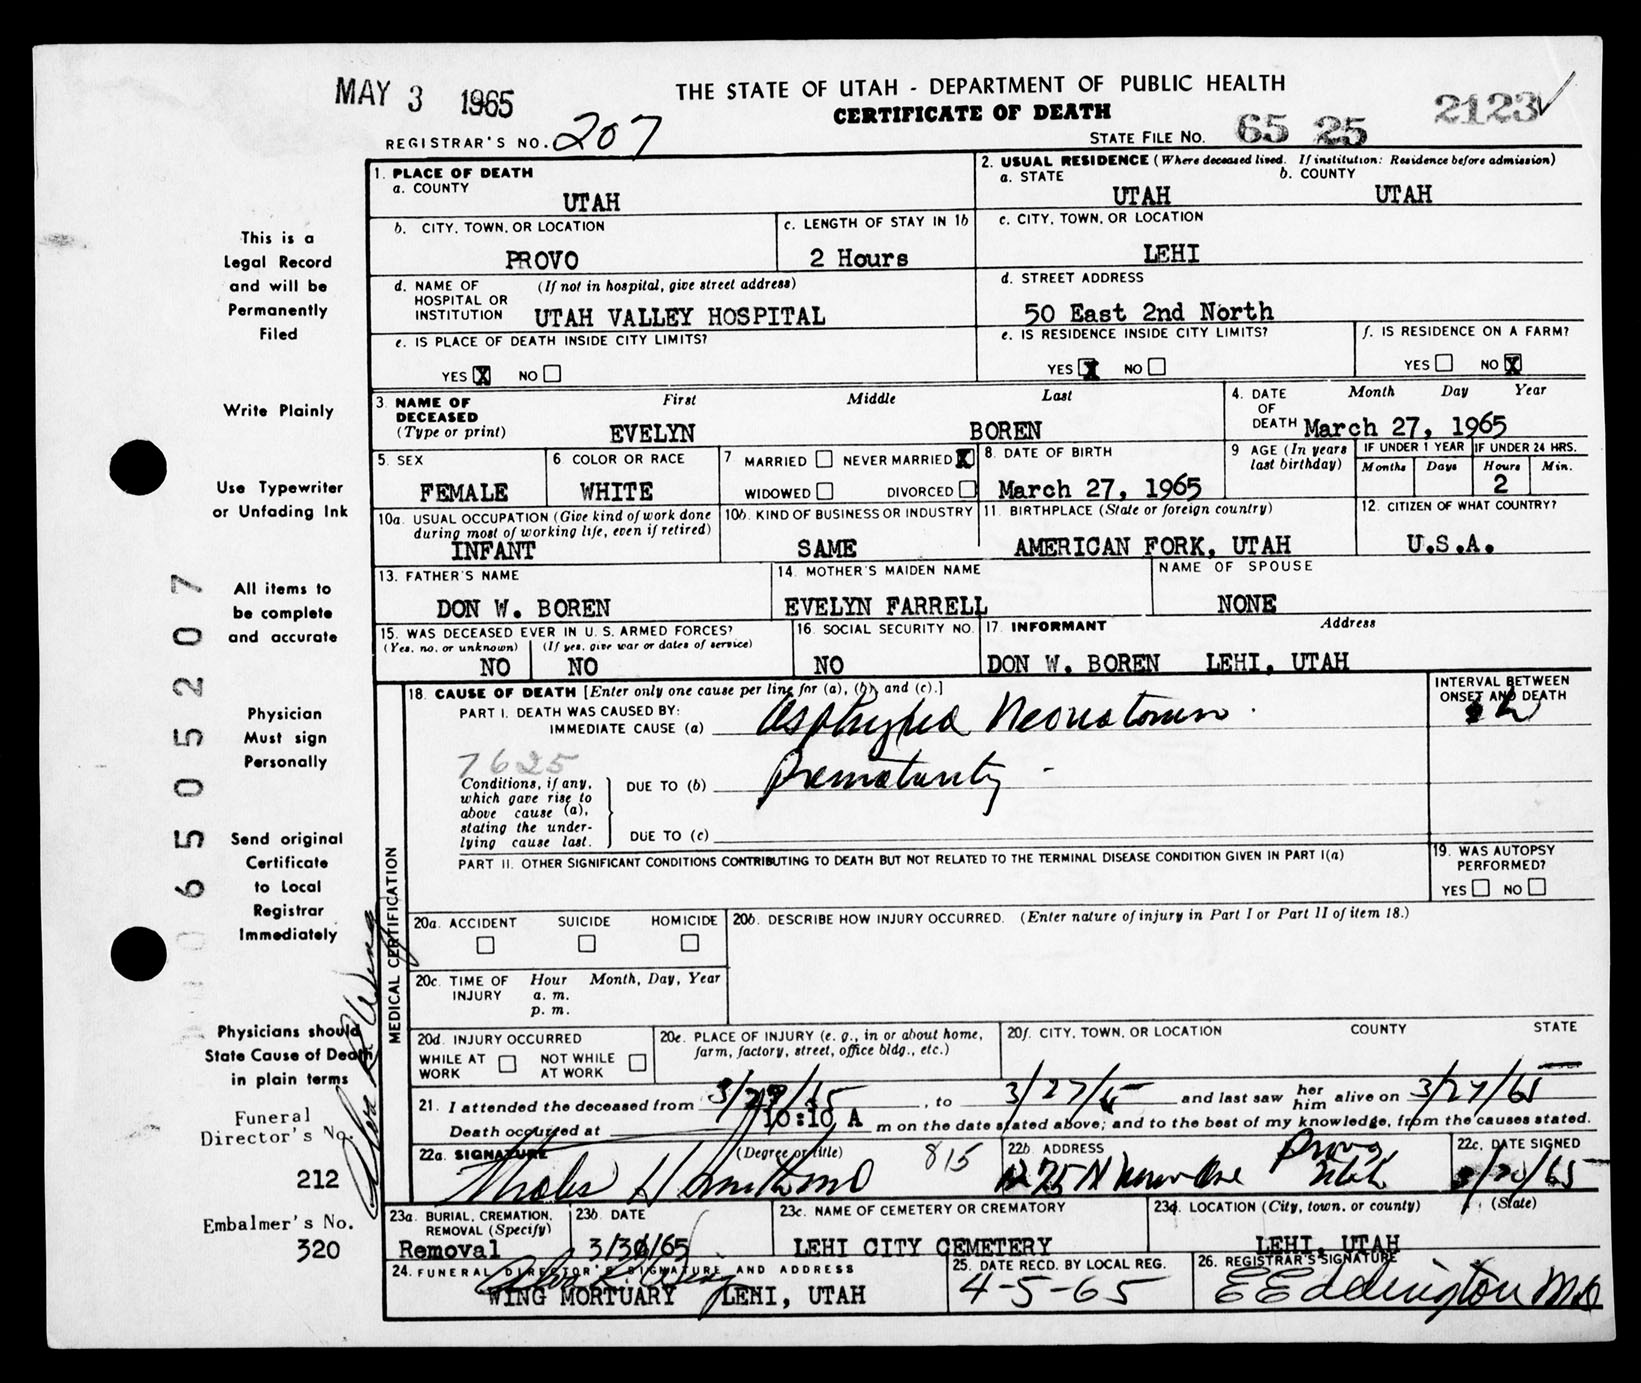 MAY 3 1965
THE STATE OF UTAH - DEPARTMENT OF PUBLIC HEALTH
CERTIFICATE OF DEATH
2123✓
REGISTRAR'S NO. 207
STATE FILE NO. 65 25
1. PLACE OF DEATH
a. COUNTY
UTAH
2. USUAL RESIDENCE (Where deceased lived. If institution: Residence before admission)
a. STATE
UTAH
b. COUNTY
UTAH
b. CITY, TOWN, OR LOCATION
PROVO
c. LENGTH OF STAY IN 1b
2 Hours
c. CITY, TOWN, OR LOCATION
LEHI
d. NAME OF HOSPITAL OR INSTITUTION
(If not in hospital, give street address)
UTAH VALLEY HOSPITAL
d. STREET ADDRESS
50 East 2nd North
e. IS PLACE OF DEATH INSIDE CITY LIMITS?
YES X NO
e. IS RESIDENCE INSIDE CITY LIMITS?
YES X NO
f. IS RESIDENCE ON A FARM?
YES NO X
3. NAME OF DECEASED
(Type or print)
First Middle Last
EVELYN BOREN
4. DATE OF DEATH
Month Day Year
March 27, 1965
5. SEX
FEMALE
6. COLOR OR RACE
WHITE
7 MARRIED NEVER MARRIED X
WIDOWED DIVORCED
8. DATE OF BIRTH
March 27, 1965
9 AGE (In years last birthday)
IF UNDER 1 YEAR
Months Days
IF UNDER 24 HRS.
Hours Min.
2
10a. USUAL OCCUPATION (Give kind of work done
during most of working life, even if retired)
INFANT
10b. KIND OF BUSINESS OR INDUSTRY
SAME
11. BIRTHPLACE (State or foreign country)
AMERICAN FORK, UTAH
12. CITIZEN OF WHAT COUNTRY?
U.S.A.
13. FATHER'S NAME
DON W. BOREN
14. MOTHER'S MAIDEN NAME
EVELYN FARRELL
NAME OF SPOUSE
NONE
15. WAS DECEASED EVER IN U. S. ARMED FORCES?
(Yes, no, or unknown) (If yes, give war or dates of service)
NO NO
16. SOCIAL SECURITY NO.
NO
17. INFORMANT Address
DON W. BOREN LEHI, UTAH
MEDICAL CERTIFICATION
18. CAUSE OF DEATH [Enter only one cause per line for (a), (b), and (c).]
INTERVAL BETWEEN
ONSET AND DEATH
PART I. DEATH WAS CAUSED BY:
IMMEDIATE CAUSE (a) Asphyxia Neonatorum
7625
Conditions, if any,
which gave rise to
above cause (a),
stating the under-
lying cause last.
DUE TO (b) Prematurity
DUE TO (c)
PART II. OTHER SIGNIFICANT CONDITIONS CONTRIBUTING TO DEATH BUT NOT RELATED TO THE TERMINAL DISEASE CONDITION GIVEN IN PART I(a)
19. WAS AUTOPSY
PERFORMED?
YES NO
20a. ACCIDENT SUICIDE HOMICIDE
20b. DESCRIBE HOW INJURY OCCURRED. (Enter nature of injury in Part I or Part II of item 18.)
20c. TIME OF INJURY
Hour Month, Day, Year
a. m.
p. m.
20d. INJURY OCCURRED
WHILE AT WORK NOT WHILE AT WORK
20e. PLACE OF INJURY (e. g., in or about home,
farm, factory, street, office bldg., etc.)
20f. CITY, TOWN, OR LOCATION COUNTY STATE
21. I attended the deceased from 3/27/65, to 3/27/65 and last saw her him alive on 3/27/65
Death occurred at 10:10 A m on the date stated above; and to the best of my knowledge, from the causes stated.
22a. SIGNATURE (Degree or title)
815
22b. ADDRESS
Provo, Utah
22c. DATE SIGNED
23a. BURIAL, CREMATION,
REMOVAL (Specify)
Removal
23b. DATE
3/30/65
23c. NAME OF CEMETERY OR CREMATORY
LEHI CITY CEMETERY
23d. LOCATION (City, town, or county) (State)
LEHI, UTAH
24. FUNERAL DIRECTOR'S SIGNATURE AND ADDRESS
WING MORTUARY LEHI, UTAH
25. DATE RECD. BY LOCAL REG.
4-5-65
26. REGISTRAR'S SIGNATURE
E E Eddington MD
This is a
Legal Record
and will be
Permanently
Filed
Write Plainly
Use Typewriter
or Unfading Ink
All items to
be complete
and accurate
Physician
Must sign
Personally
Send original
Certificate
to Local
Registrar
Immediately
Physicians should
State Cause of Death
in plain terms
Funeral
Director's No.
212
Embalmer's No.
320
6505207